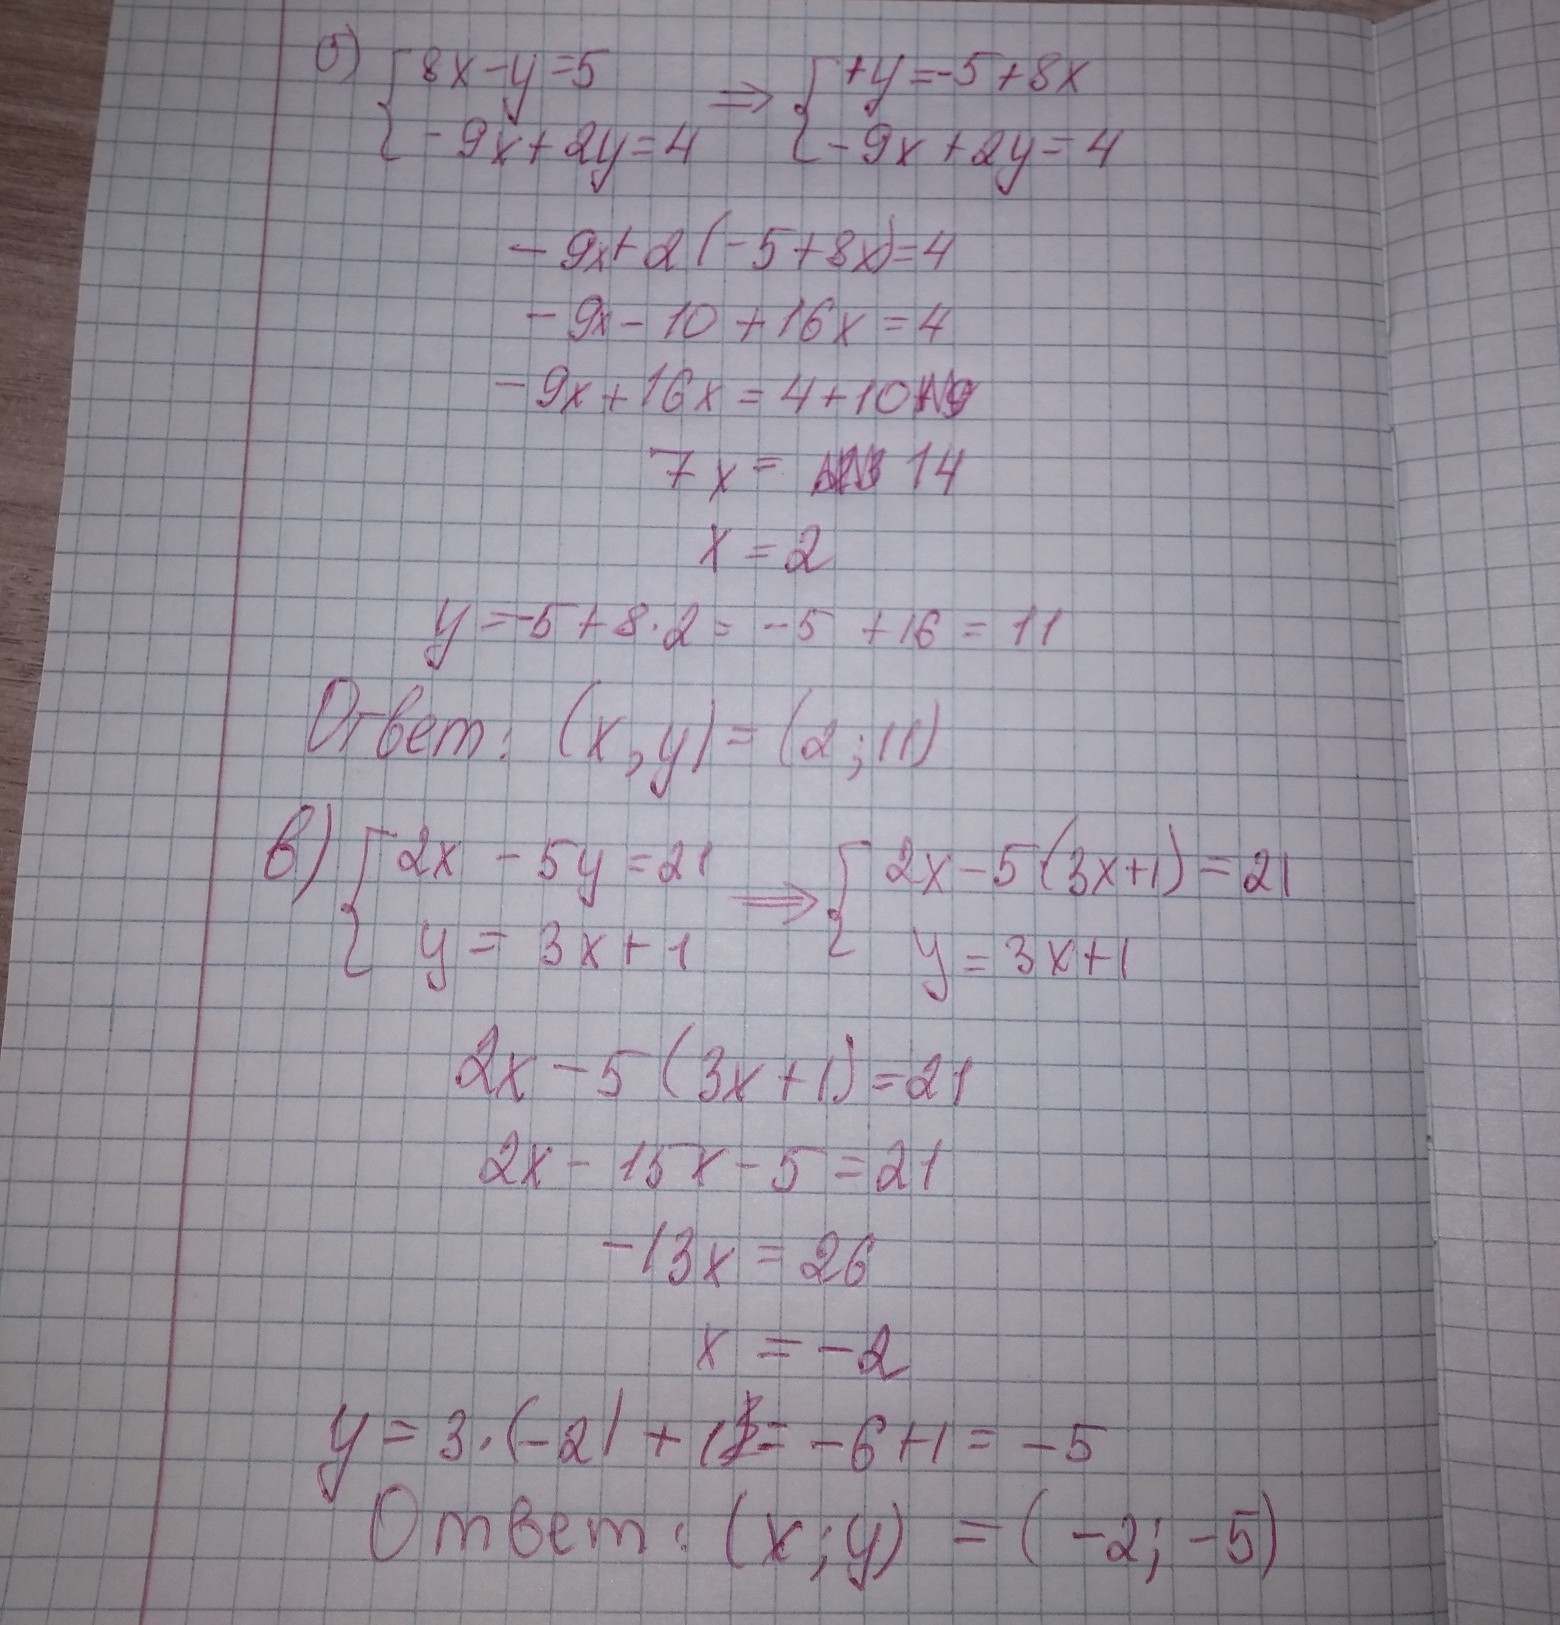 б) { 8x-y=5 ⇒ { +y=-5+8x
{ -9x+2y=4 { -9x+2y=4
-9x+2(-5+8x)=4
-9x-10+16x=4
-9x+16x=4+10
7x= 14
x=2
y=-5+8·2=-5+16=11
Ответ: (x,y)=(2;11)
в) { 2x-5y=21 ⇒ { 2x-5(3x+1)=21
{ y=3x+1 { y=3x+1
2x-5(3x+1)=21
2x-15x-5=21
-13x=26
x=-2
y=3·(-2)+1=-6+1=-5
Ответ: (x;y)=(-2;-5)